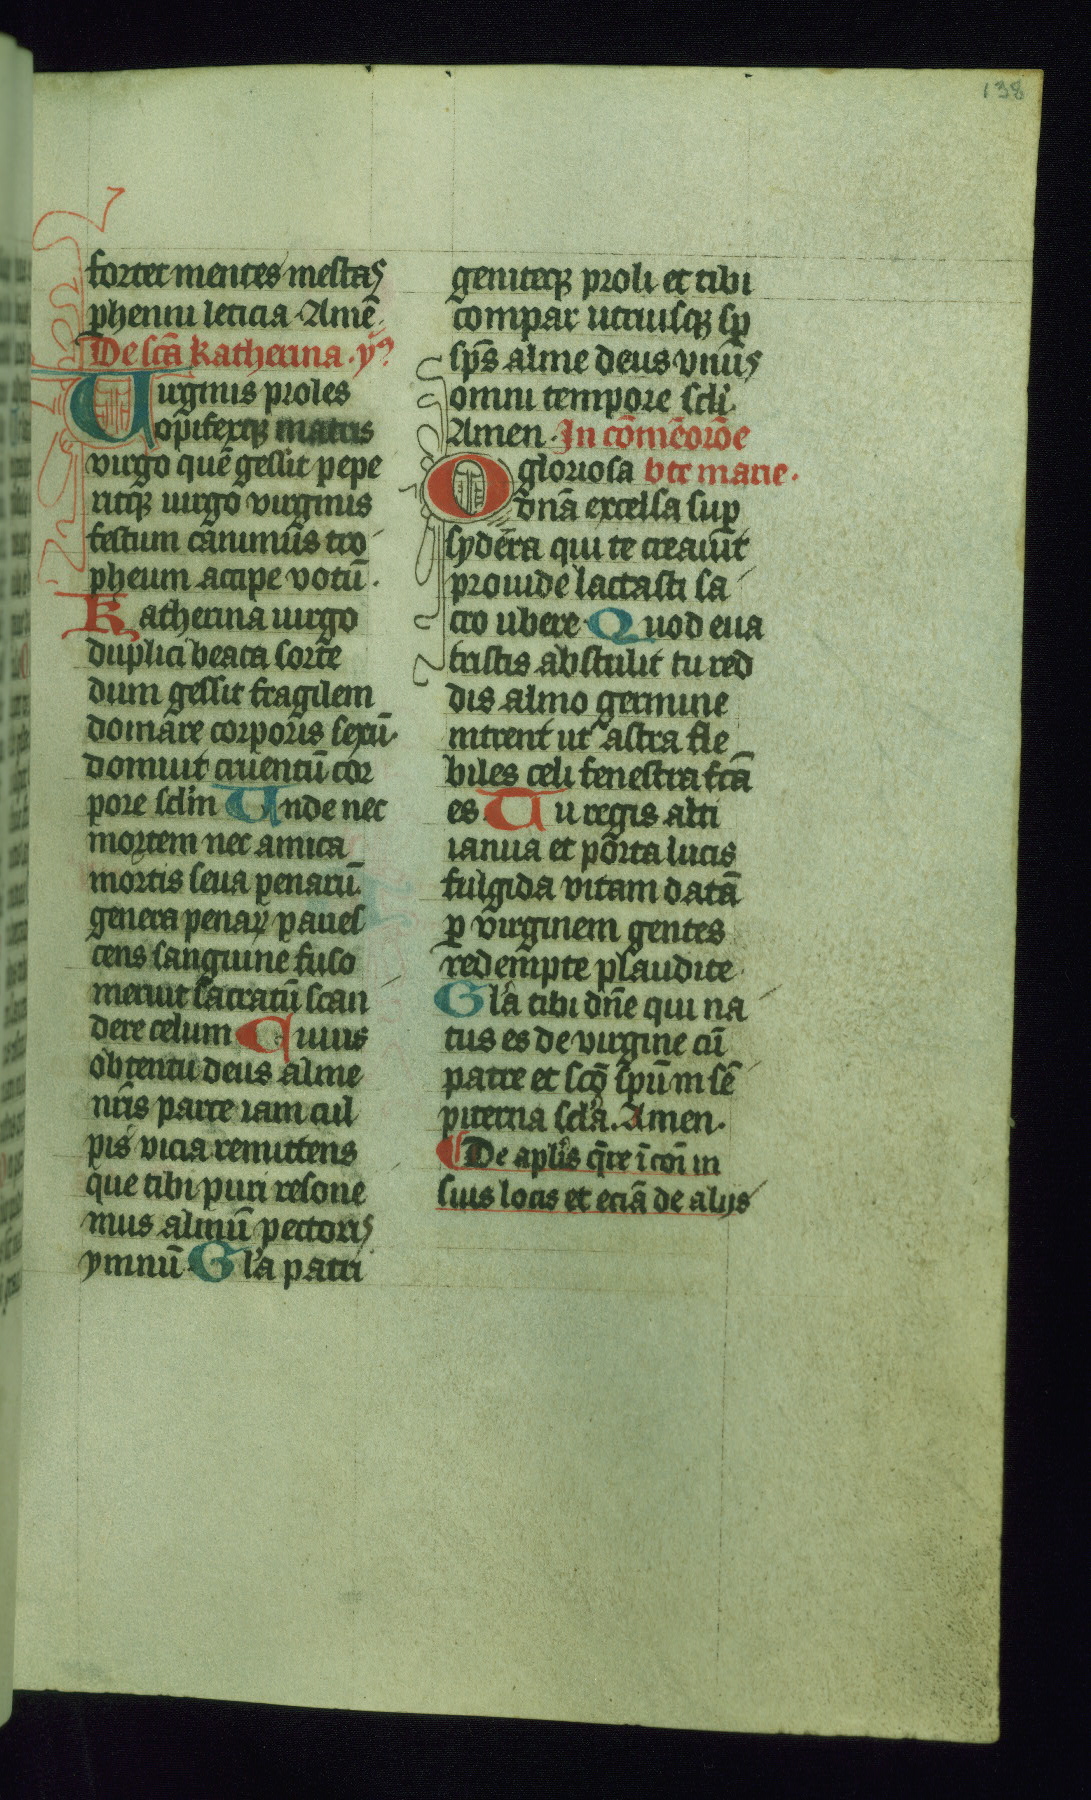 138
fortet mentes mestas
phenni leticia Amē.
De scā Katherina. y9
Uirginis proles
opifexqꝫ matris
virgo quē gessit pepe
ritqꝫ uirgo virginis
festum canimus tro
pheum accipe votū.
Katherina uirgo
duplici beata sorte
dum gessit fragilem
domare corporis sexū.
domuit cruentū cor
pore sclm Unde nec
mortem nec amica
mortis seua penarū.
genera penaꝝ pauef
cens sanguine fuso
meruit sacratū scan
dere celum Cuius
obtentu deus alme
nris parce iam cul
pis vicia remittens
que tibi puri resone
mus almū pectoris
ymnū Gla patri
geniteqꝫ proli et tibi
compar utriusqꝫ sꝑ
sps alme deus vnus
omni tempore scli.
Amen. In cōmēorōe
O gloriosa bte marie.
dnā excelsa suꝑ
sydera qui te creauit
prouide lactasti sa
cro ubere Quod eua
tristis abstulit tu red
dis almo germine
intrent ut astra fle
biles celi fenestra fcā
es Tu regis alti
ianua et porta lucis
fulgida vitam datā
ꝑ virginem gentes
redempte plaudite
Gla tibi dne qui na
tus es de virgine cū
patre et scō spū in sē
piterna scla. Amen.
De aplis qre ī cōi in
suis locis et eciā de alijs